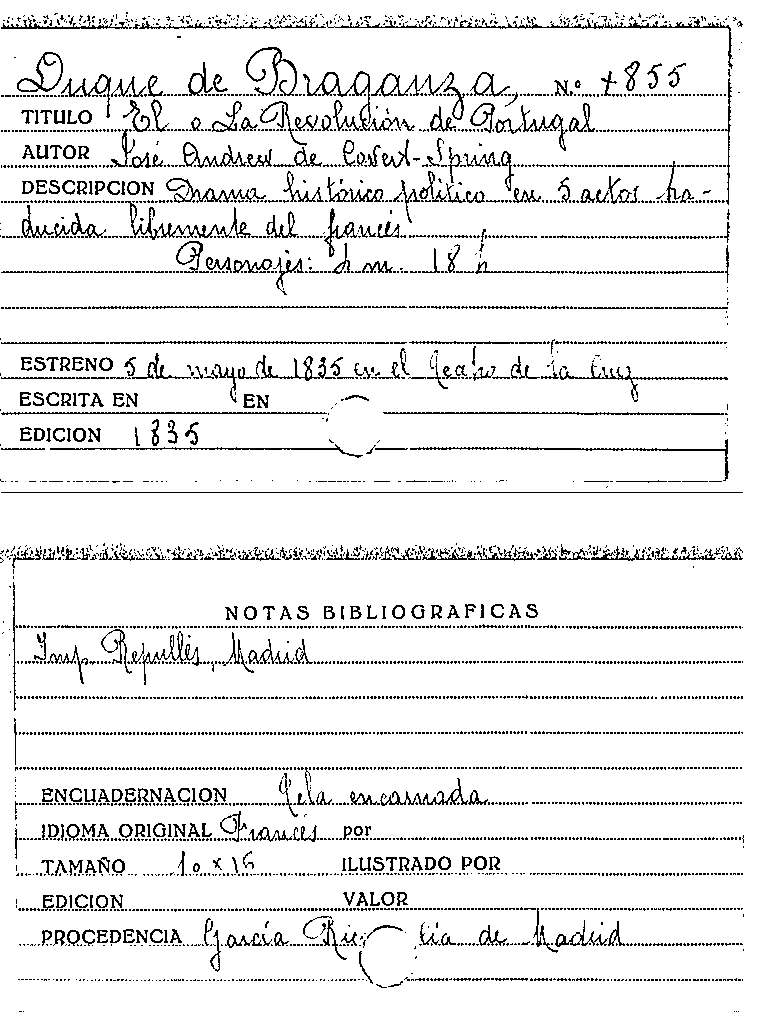 Duque de Braganza, N.º +855
TITULO El o La Revolución de Portugal
AUTOR José Andrew de Covert-Spring
DESCRIPCION Drama histórico político en 5 actos tra-
ducida libremente del francés
Personajes: h m. 18 h
ESTRENO 5 de mayo de 1835 en el Teatro de la Cruz
ESCRITA EN EN
EDICION 1835
NOTAS BIBLIOGRAFICAS
Imp. Repullés, Madrid
ENCUADERNACION Tela encarnada
IDIOMA ORIGINAL Francés por
TAMAÑO 10 x 15 ILUSTRADO POR
EDICION VALOR
PROCEDENCIA García Rico de Madrid